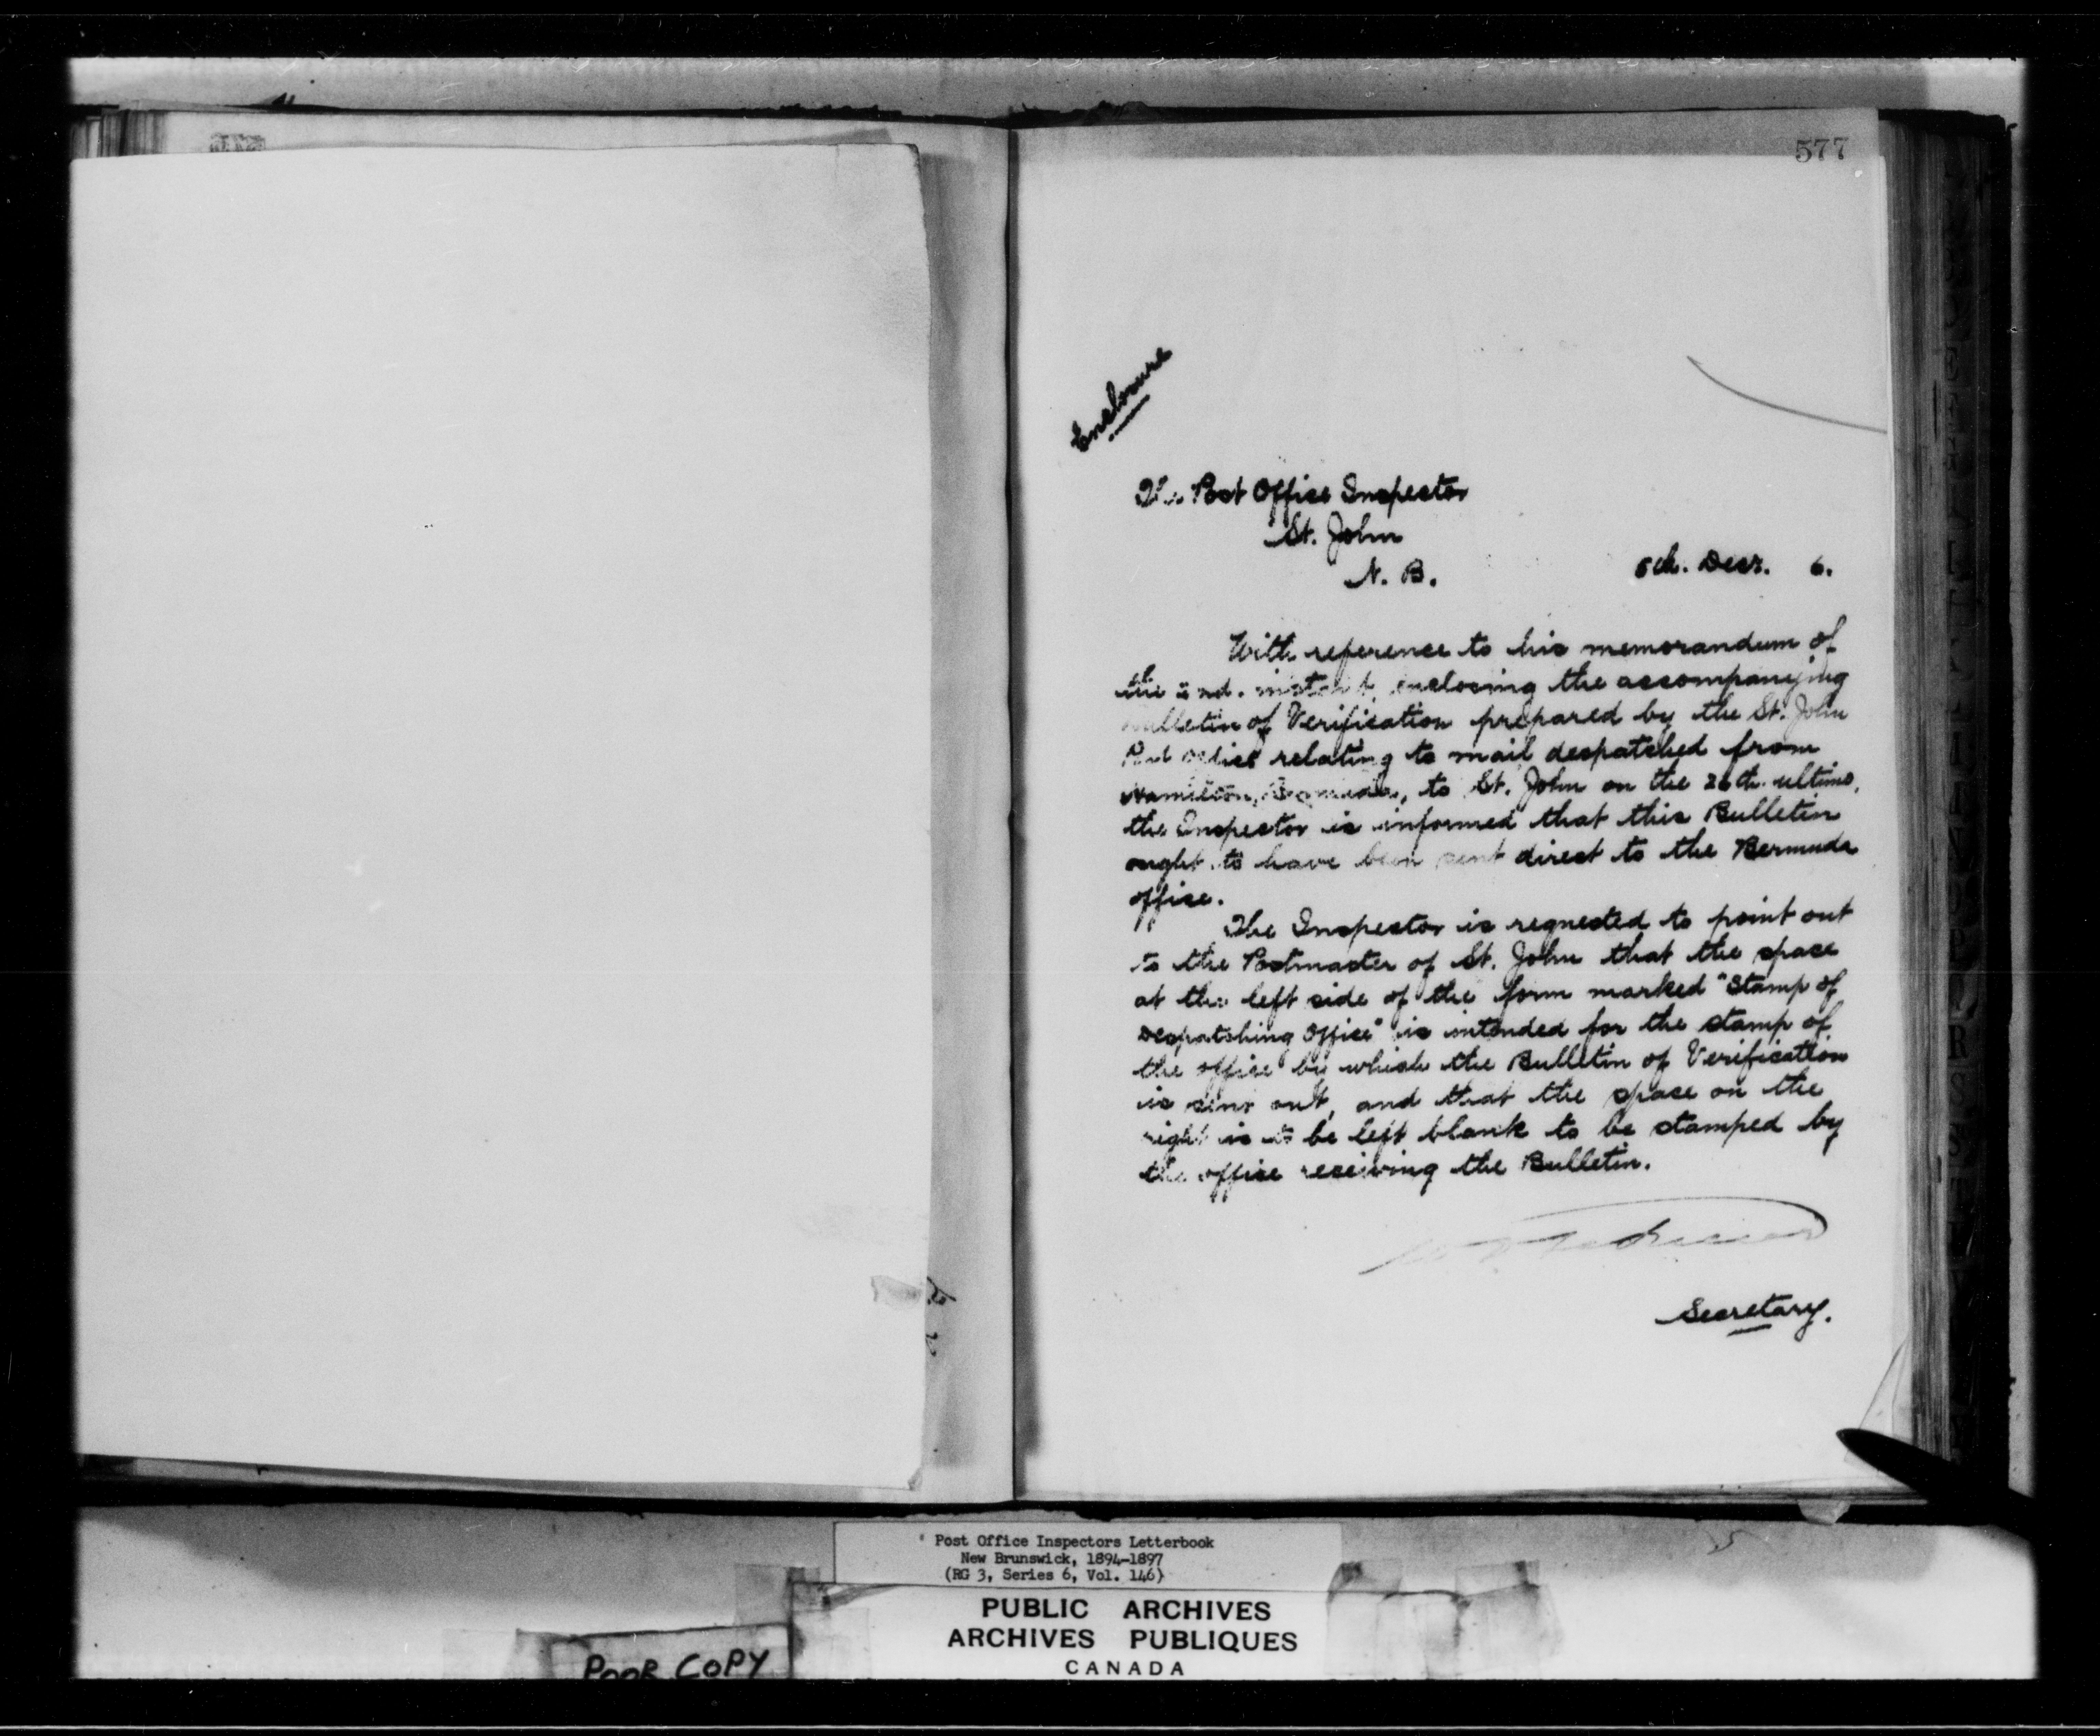 577
Enclosure
The Post Office Inspector
St. John
N. B.
Decr. 6.
With reference to his memorandum of
the instant, enclosing the accompanying
Bulletin of Verification prepared by the St. John
Post Office relating to mail despatched from
Hamilton, Bermuda, to St. John on the 26th. ultimo,
the Inspector is informed that this Bulletin
ought to have been sent direct to the Bermuda
office.
The Inspector is requested to point out
to the Postmaster of St. John that the space
at the left side of the form marked "Stamp of
Despatching Office" is intended for the stamp of
the office by which the Bulletin of Verification
is sent out, and that the space on the
right is to be left blank to be stamped by
the office receiving the Bulletin.
Secretary.
Post Office Inspectors Letterbook
New Brunswick, 1894-1897
(RG 3, Series 6, Vol. 146)
PUBLIC ARCHIVES
ARCHIVES PUBLIQUES
CANADA
POOR COPY